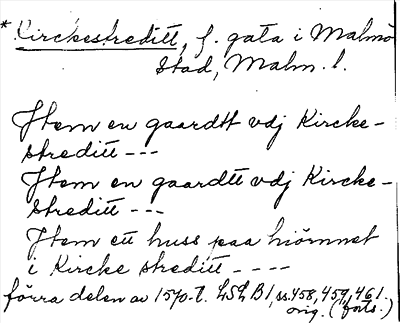 *Kirckestreditt, f. gata i Malmö
Stad, Malm. l.
Jtem en gaardtt vdj Kircke-
streditt ---
Jtem en gaardtt vdj Kircke-
streditt ---
Jtem ett huss paa hiörnnet
i Kircke streditt ----
förra delen av 1570-t. LSLB1, ss. 458, 459, 461.
orig. (forts.)